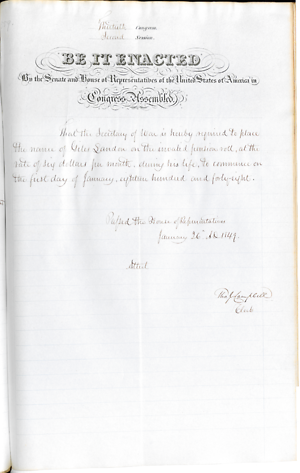 Thirtieth Congress
Second Session
BE IT ENACTED
By the Senate and House of Representatives of the United States of America in
Congress Assembled,
That the Secretary of War is hereby required to place
the name of Giles London on the invalid pension roll, at the
rate of six dollars per month, during his life, to commence on
the first day of January, eighteen hundred and forty-eight.
Passed the House of Representatives
January 26th A.D. 1849.
Attest
Tho. J. Campbell
Clerk